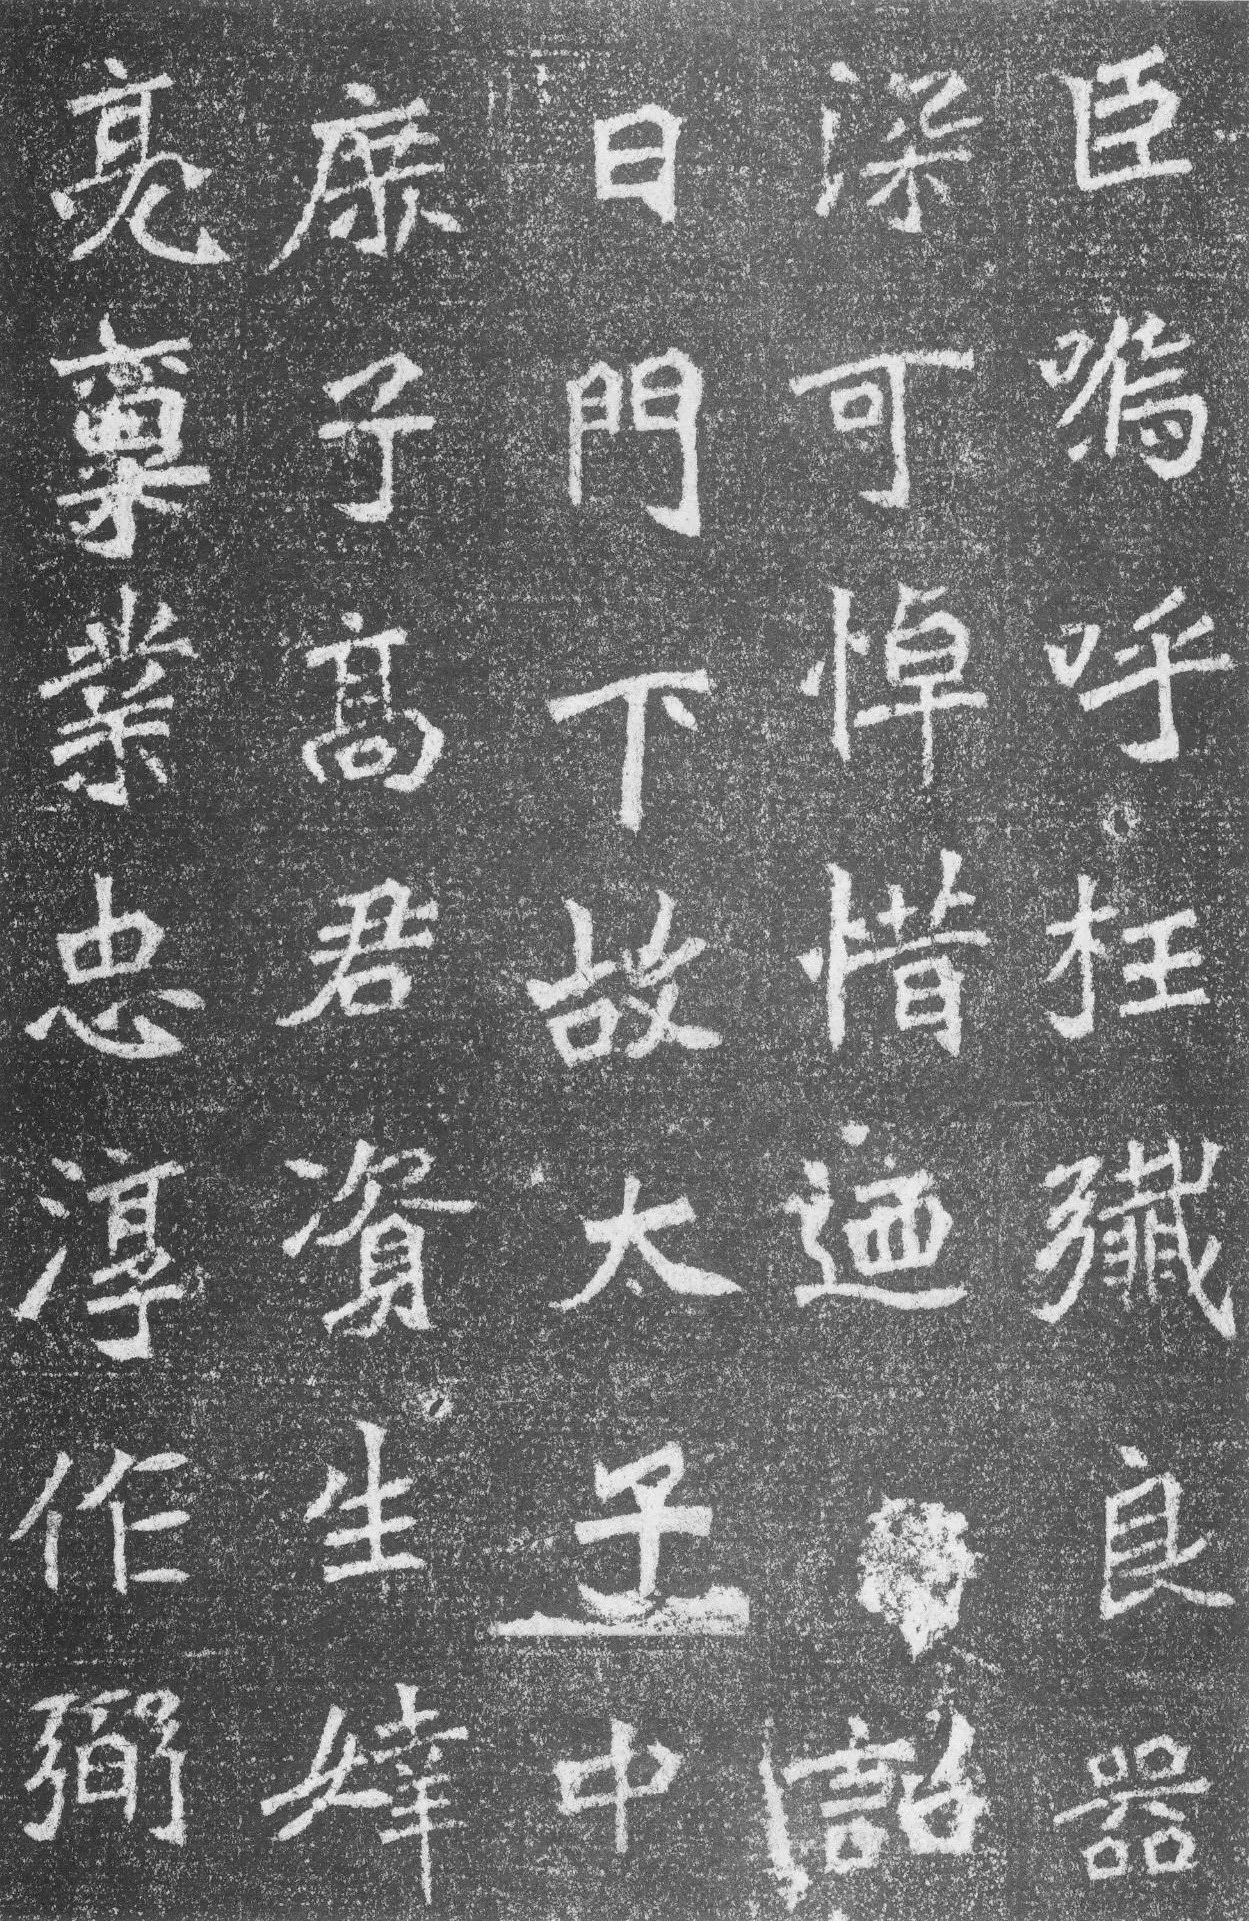 臣嗚呼枉殲良器
深可悼惜迺詔
曰門下故太子中
庶子高君資生
亮稟業忠淳作弼